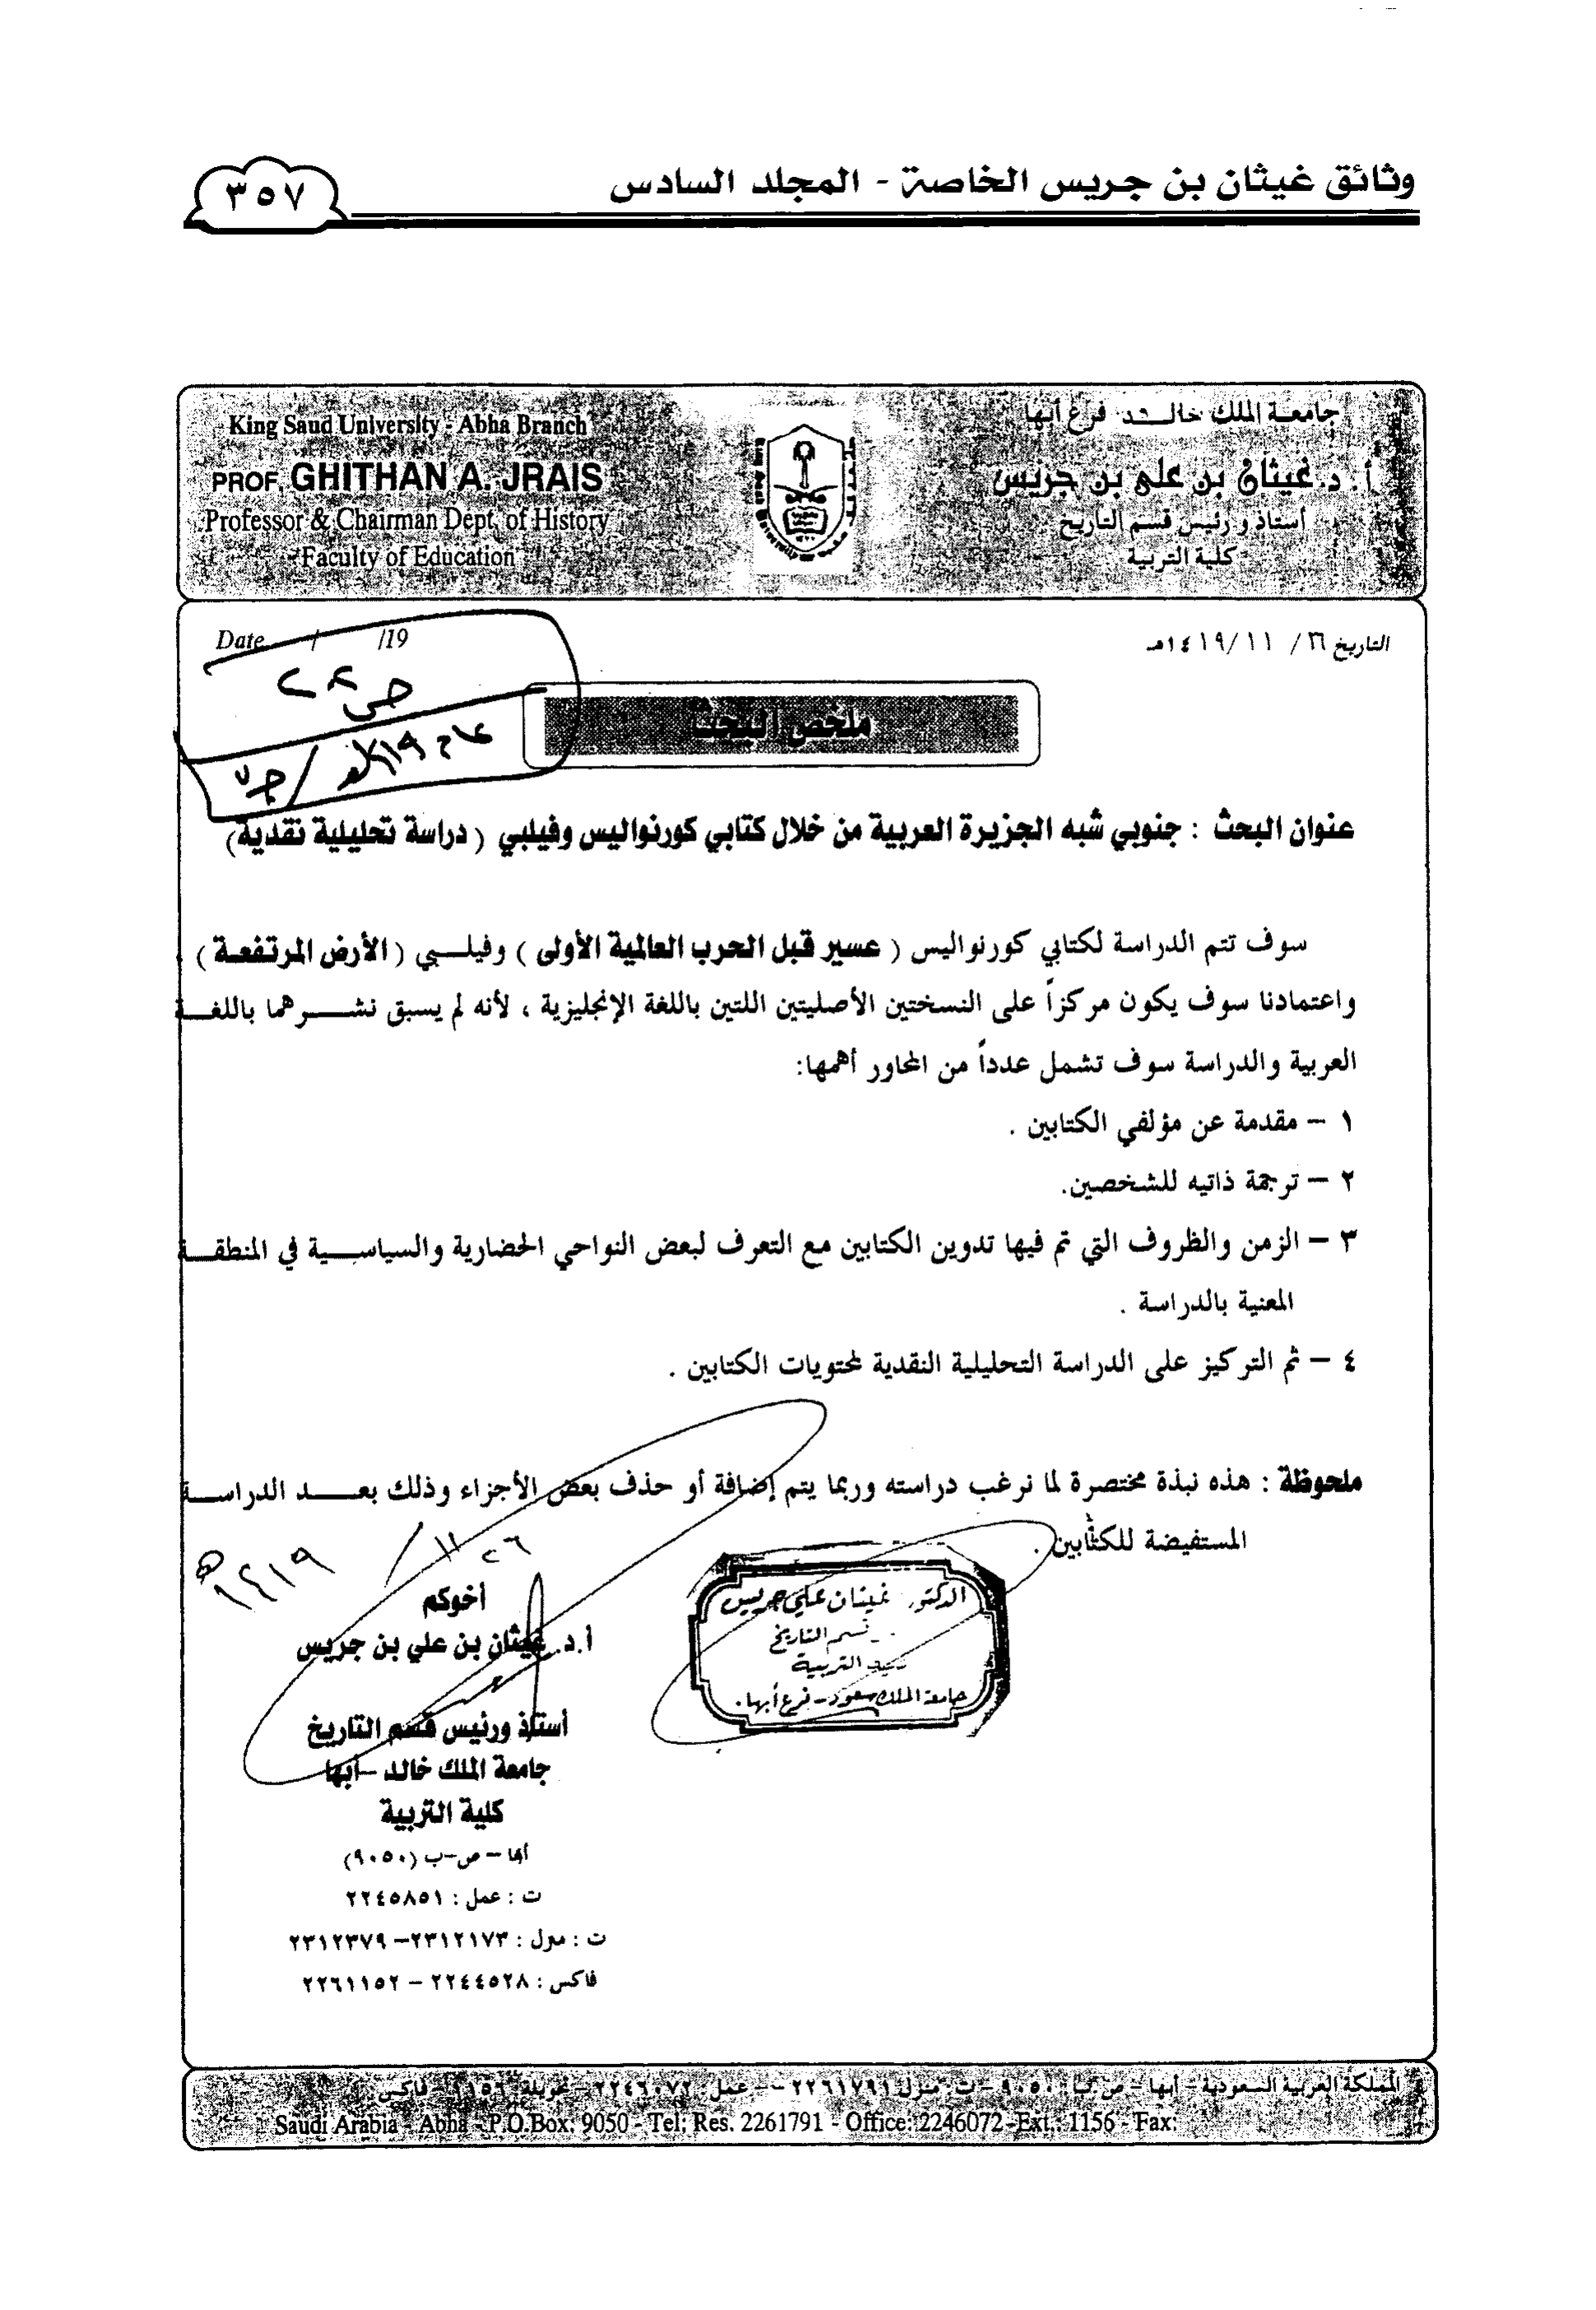 وثائق غيثان بن جريس الخاصة - المجلد السادس
٣٥٧
جامعة الملك خالد فرع أبها
أ. د. غيثان بن علي بن جريس
أستاذ ورئيس قسم التاريخ
كلية التربية
King Saud University - Abha Branch
PROF. GHITHAN A. JRAIS
Professor & Chairman Dept. of History
Faculty of Education
التاريخ ٢٦/ ١١/ ١٤١٩هـ
Date / /19
ملخص البحث
عنوان البحث : جنوبي شبه الجزيرة العربية من خلال كتابي كورنواليس وفيلبي ( دراسة تحليلية نقدية)
سوف تتم الدراسة لكتابي كورنواليس ( عسير قبل الحرب العالمية الأولى ) وفيلبي ( الأرض المرتفعة ) .
واعتمادنا سوف يكون مركزاً على النسختين الأصليتين اللتين باللغة الإنجليزية ، لأنه لم يسبق نشرهما باللغة
العربية والدراسة سوف تشمل عدداً من المحاور أهمها:
١ – مقدمة عن مؤلفي الكتابين .
٢ – ترجمة ذاتيه للشخصين.
٣ – الزمن والظروف التي تم فيها تدوين الكتابين مع التعرف لبعض النواحي الحضارية والسياسية في المنطقة
المعنية بالدراسة .
٤ – ثم التركيز على الدراسة التحليلية النقدية لمحتويات الكتابين .
ملحوظة : هذه نبذة مختصرة لما نرغب دراسته وربما يتم إضافة أو حذف بعض الأجزاء وذلك بعد الدراسة
المستفيضة للكتابين .
٢٦ / ١١ / ١٤١٩هـ
أخوكم
أ.د. غيثان بن علي بن جريس
أستاذ ورئيس قسم التاريخ
جامعة الملك خالد – أبها
كلية التربية
أبها – ص–ب (٩٠٥٠)
ت : عمل : ٢٢٤٥٨٥١
ت : منزل : ٢٣١٢١٧٣– ٢٣١٢٣٧٩
فاكس : ٢٢٤٤٥٢٨ – ٢٢٦١١٥٢
الدكتور غيثان علي جريس
قسم التاريخ
كلية التربية
جامعة الملك سعود – فرع أبها.
المملكة العربية السعودية – أبها – ص.ب: ٩٠٥٠ – ت: منزل ٢٢٦١٧٩١ – عمل: ٢٢٤٦٠٧٢ – تحويلة: ١١٥٦ – فاكس:
Saudi Arabia - Abha - P.O.Box. 9050 - Tel; Res. 2261791 - Office: 2246072 -Ext.: 1156 - Fax: